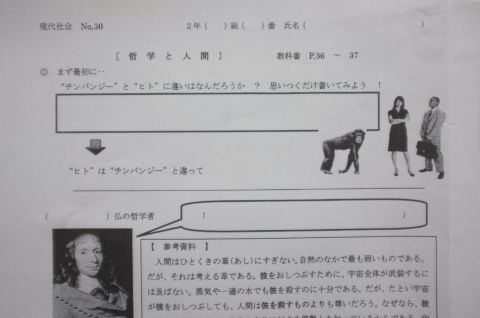 現代社会 No,30 2年( )組( )番 氏名( )
[ 哲学と人間 ] 教科書 P,36 ~ 37
◎ まず最初に‥
“チンパンジー”と“ヒト”に違いはなんだろうか ? 思いつくだけ書いてみよう !
“ヒト”は“チンパンジー”と違って
( )仏の哲学者 [ ]
【 参考資料 】
人間はひとくきの葦(あし)にすぎない。自然のなかで最も弱いものである。
だが、それは考える葦である。彼をおしつぶすために、宇宙全体が武装するに
は及ばない。蒸気や一滴の水でも彼を殺すのに十分である。だが、たとい宇宙
が彼をおしつぶしても、人間は彼を殺すものよりも尊いだろう。なぜなら、彼